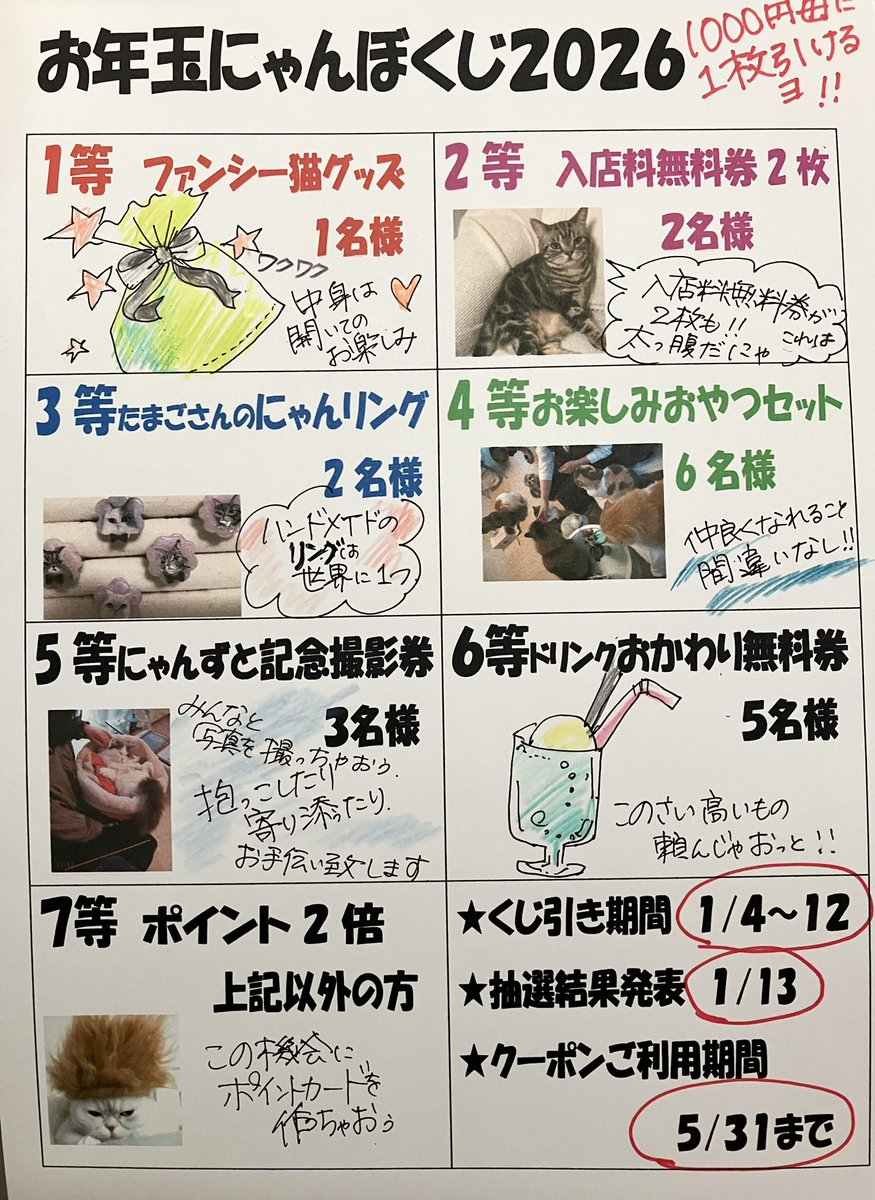 お年玉にゃんぼくじ2026
1000円毎に
1枚引ける
ヨ!!
1等 ファンシー猫グッズ
1名様
ワクワク
中身は
開いての
お楽しみ
2等 入店料無料券2枚
2名様
入店料無料券が
2枚も!! これは
太っ腹だにゃ
3等たまごさんのにゃんリング
2名様
ハンドメイドの
リングは
世界に1つ
4等お楽しみおやつセット
6名様
仲良くなれること
間違いなし!!
5等にゃんずと記念撮影券
3名様
みんなと
写真を撮っちゃおぅ
抱っこしたり
寄り添ったり
お手伝い致します
6等ドリンクおかわり無料券
5名様
このさい高いもの
頼んじゃおっと!!
7等 ポイント2倍
上記以外の方
この機会に
ポイントカードを
作っちゃおぅ
★くじ引き期間 1/4～12
★抽選結果発表 1/13
★クーポンご利用期間
5/31まで